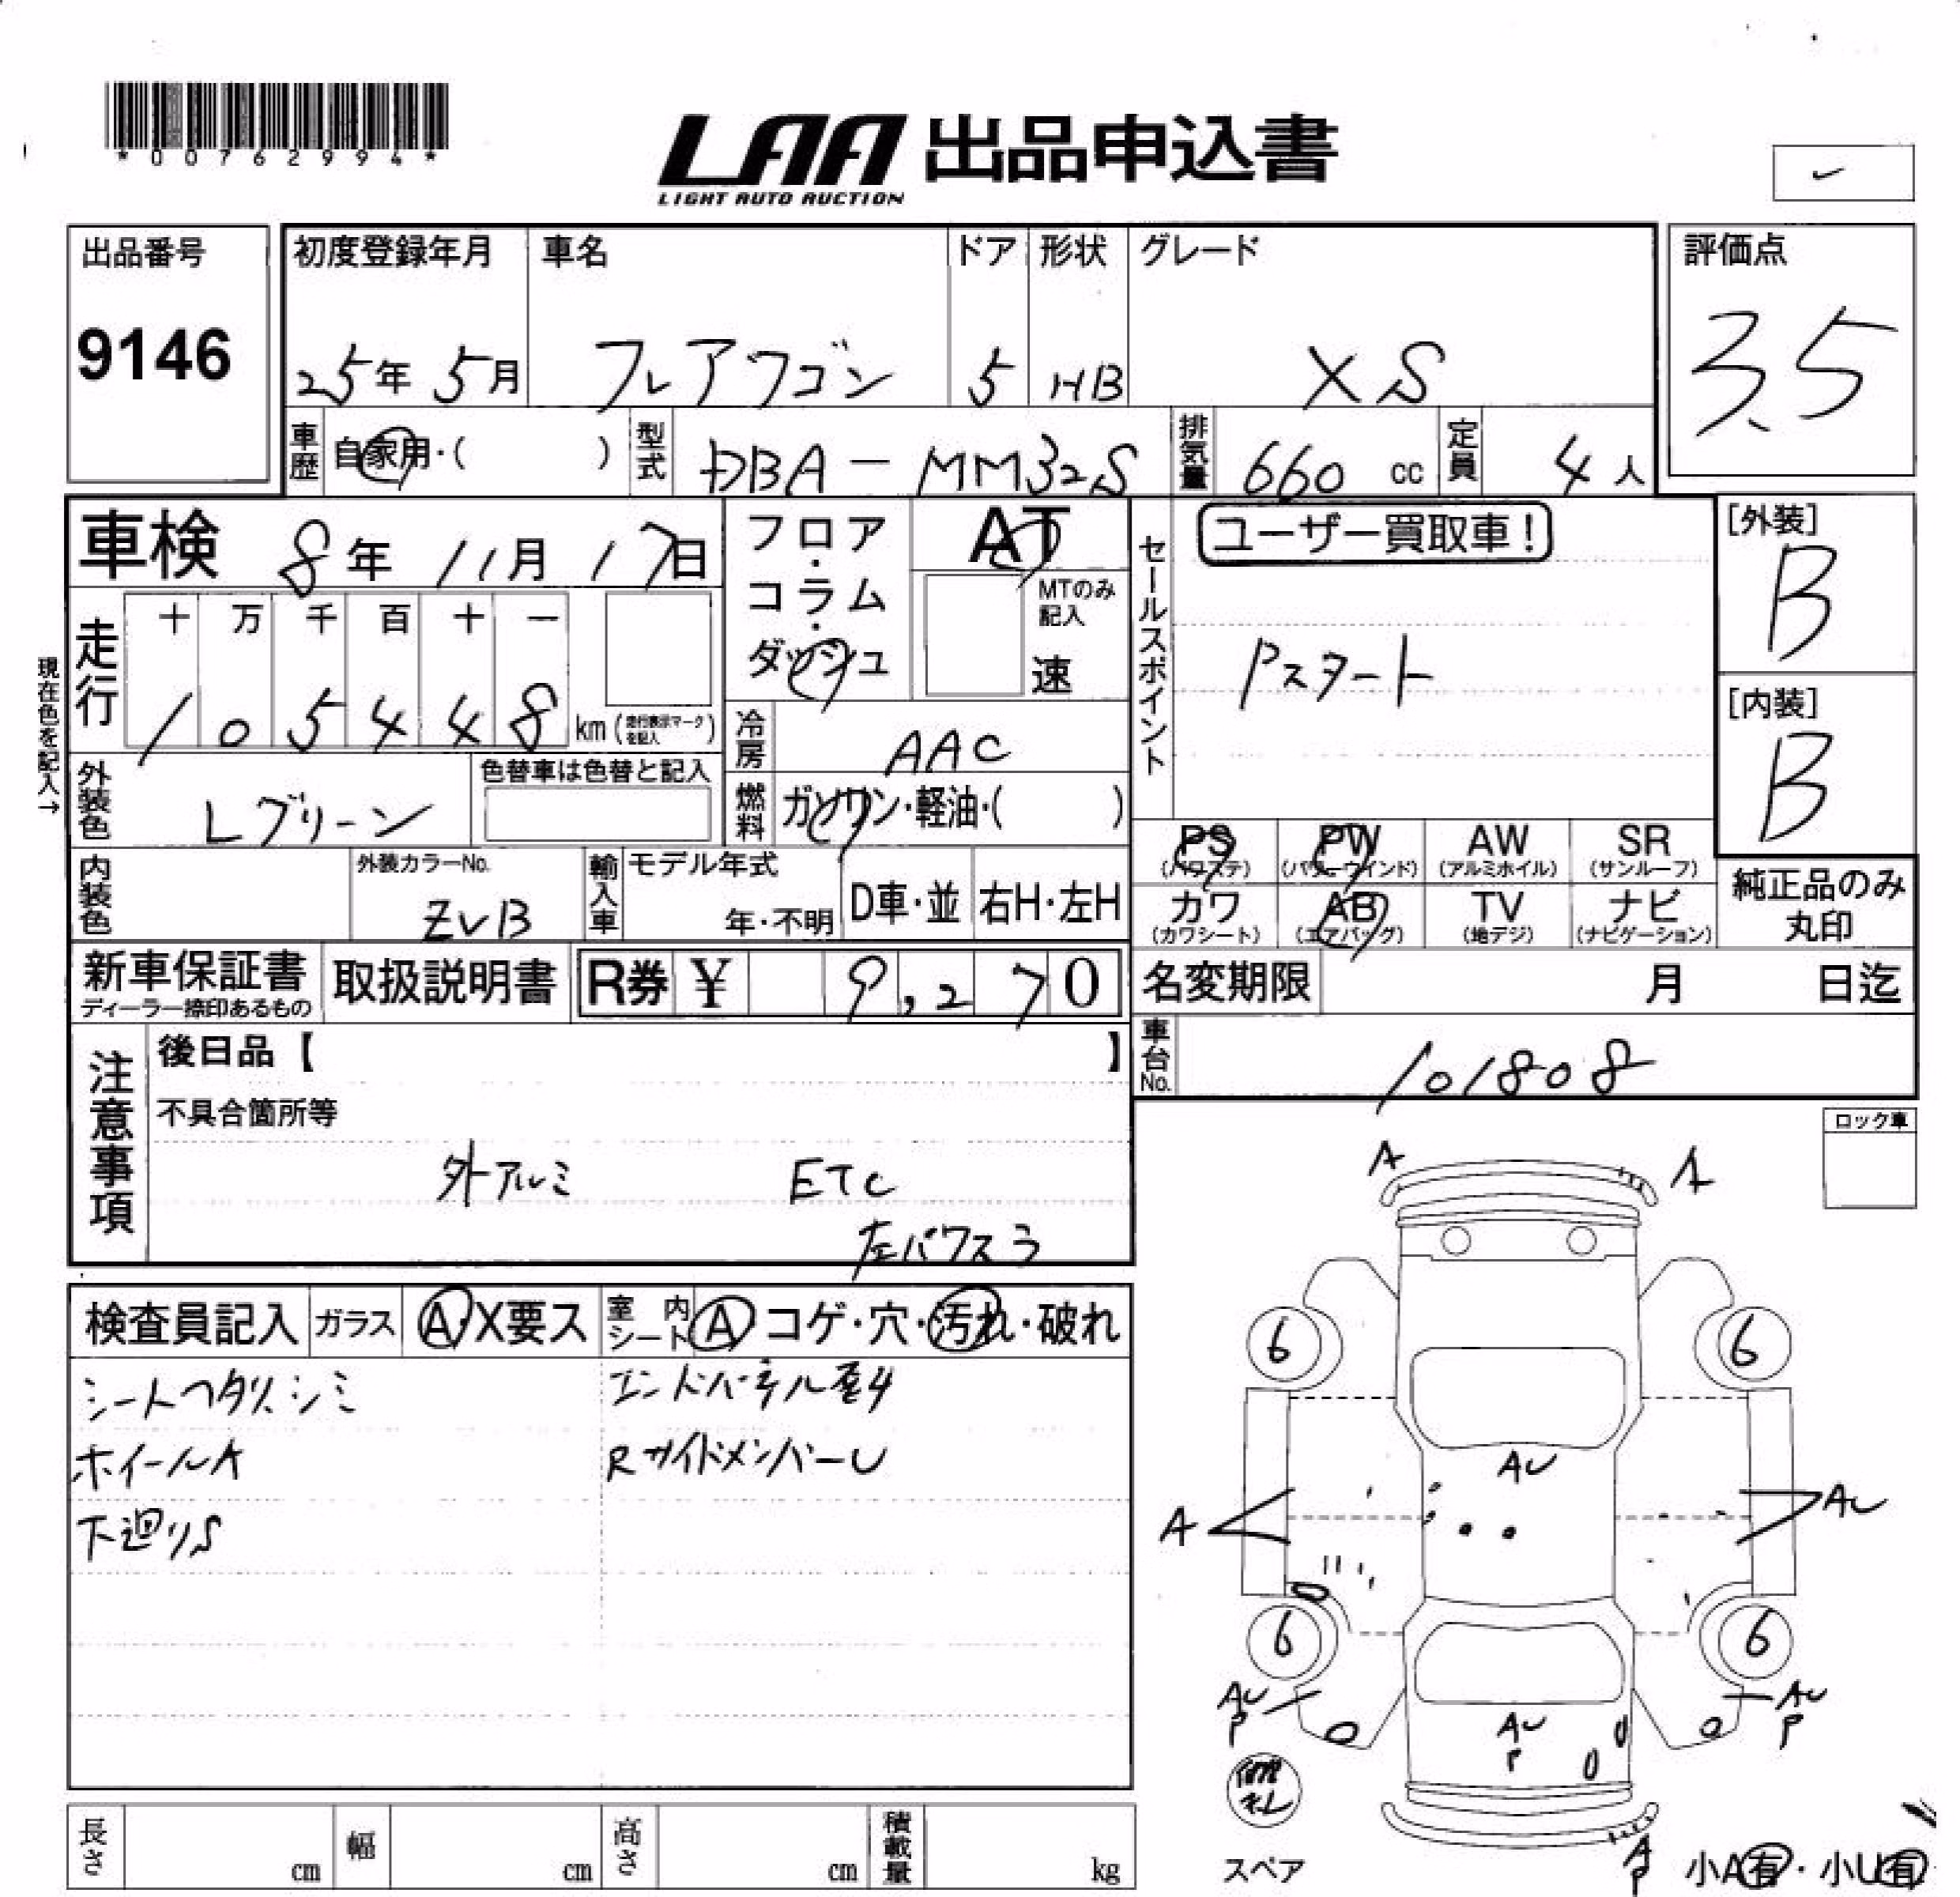 *00762994*
LAA 出品申込書
LIGHT AUTO AUCTION
出品番号
9146
初度登録年月
25年 5月
車名
フレアワゴン
ドア
5
形状
HB
グレード
XS
評価点
3.5
車歴 自家用・( )
型式 DBA-MM32S
排気量 660 cc
定員 4人
車検 8年 11月 17日
フロア・コラム・ダッシュ
AT
MTのみ記入
速
セールスポイント
ユーザー買取車!
Pスタート
[外装]
B
[内装]
B
現在色を記入→
走行
十 万 千 百 十 一
1 0 5 4 4 8 km (走行表示マークを記入)
冷房 AAC
外装色 Lグリーン
色替車は色替と記入
燃料 ガソリン・軽油・( )
PS (パワステ)
PW (パワーウインド)
AW (アルミホイル)
SR (サンルーフ)
カワ (カワシート)
AB (エアバッグ)
TV (地デジ)
ナビ (ナビゲーション)
純正品のみ丸印
内装色
外装カラーNo.
ZVB
輸入車
モデル年式
年・不明
D車・並
右H・左H
新車保証書
ディーラー捺印あるもの
取扱説明書
R券 ¥ 9,270
名変期限 月 日迄
車台No. 101808
注意事項
後日品【 】
不具合箇所等
外アルミ ETC
左パワスラ
ロック車
検査員記入
ガラス A・X要ス
室内シート A コゲ・穴・汚れ・破れ
シートヘタリ、シミ
ホイールA
下廻りS
エンドパネル歪み
RサイドメンバーU
A A
6 6
AU
A AU
6 6
AU P
AU P
AU P
A P
スペア
小A有・小U有
長さ cm
幅 cm
高さ cm
積載量 kg